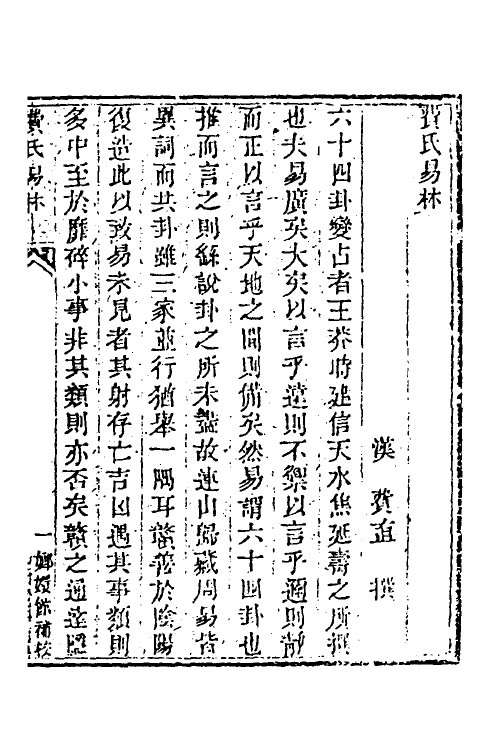 費氏易林
漢 費直 撰
六十四卦變占者王莽時建信天水焦延壽之所撰
也夫易廣矣大矣以言乎遠則不禦以言乎邇則靜
而正以言乎天地之間則備矣然易謂六十四卦也
推而言之則繇說卦之所未盡故連山歸藏周易皆
異詞而共卦雖三家並行猶舉一隅耳贛善於陰陽
復造此以致易未見者其射存亡吉凶遇其事類則
多中至於靡碎小事非其類則亦否矣贛之通達隱
費氏易林
一
嫏嬛餘補校